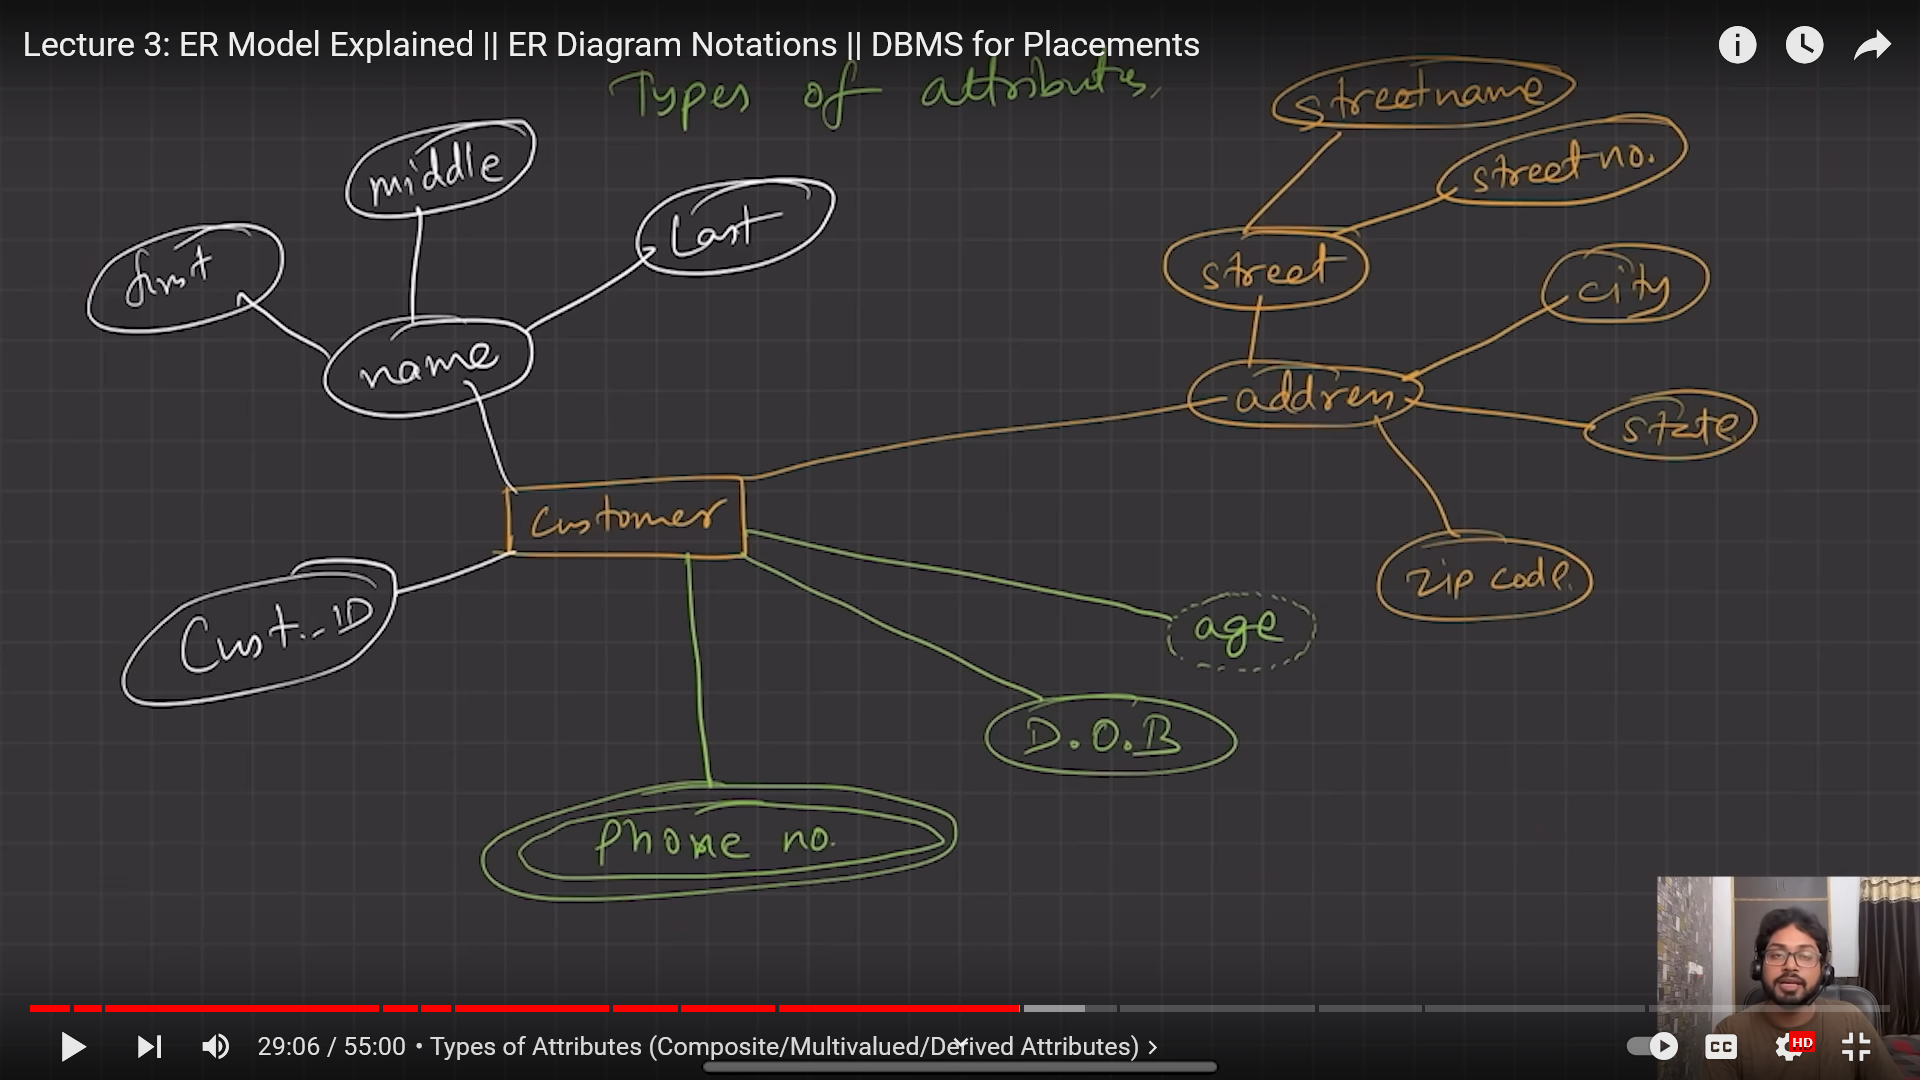 Lecture 3: ER Model Explained || ER Diagram Notations || DBMS for Placements
Types of attributes,
streetname
middle
street no.
Last
first
street
city
name
address
state
Customer
zip code
Cust._ID
age
D.O.B
Phone no.
29:06 / 55:00 • Types of Attributes (Composite/Multivalued/Derived Attributes) >
CC
HD